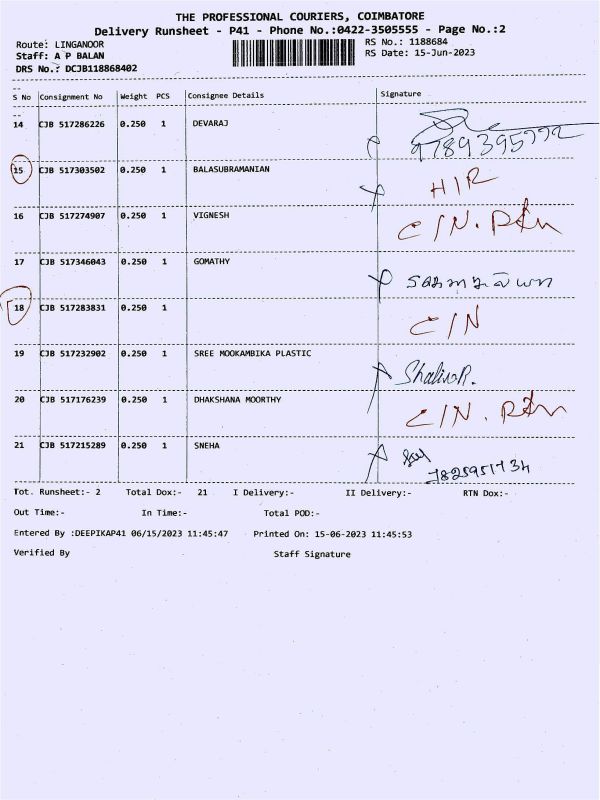 THE PROFESSIONAL COURIERS, COIMBATORE
Delivery Runsheet - P41 - Phone No.:0422-3505555 - Page No.:2
Route: LINGANOOR
RS No.: 1188684
Staff: A P BALAN
RS Date: 15-Jun-2023
DRS No.: DCJB118868402
S No Consignment No Weight PCS Consignee Details Signature
14 CJB 517286226 0.250 1 DEVARAJ
9789395772
15 CJB 517303502 0.250 1 BALASUBRAMANIAN H/R
16 CJB 517274907 0.250 1 VIGNESH C/N.
17 CJB 517346043 0.250 1 GOMATHY
18 CJB 517283831 0.250 1 C/N
19 CJB 517232902 0.250 1 SREE MOOKAMBIKA PLASTIC
20 CJB 517176239 0.250 1 DHAKSHANA MOORTHY C/N.
21 CJB 517215289 0.250 1 SNEHA
Tot. Runsheet:- 2 Total Dox:- 21 I Delivery:- II Delivery:- RTN Dox:-
Out Time:- In Time:- Total POD:-
Entered By :DEEPIKAP41 06/15/2023 11:45:47 Printed On: 15-06-2023 11:45:53
Verified By Staff Signature